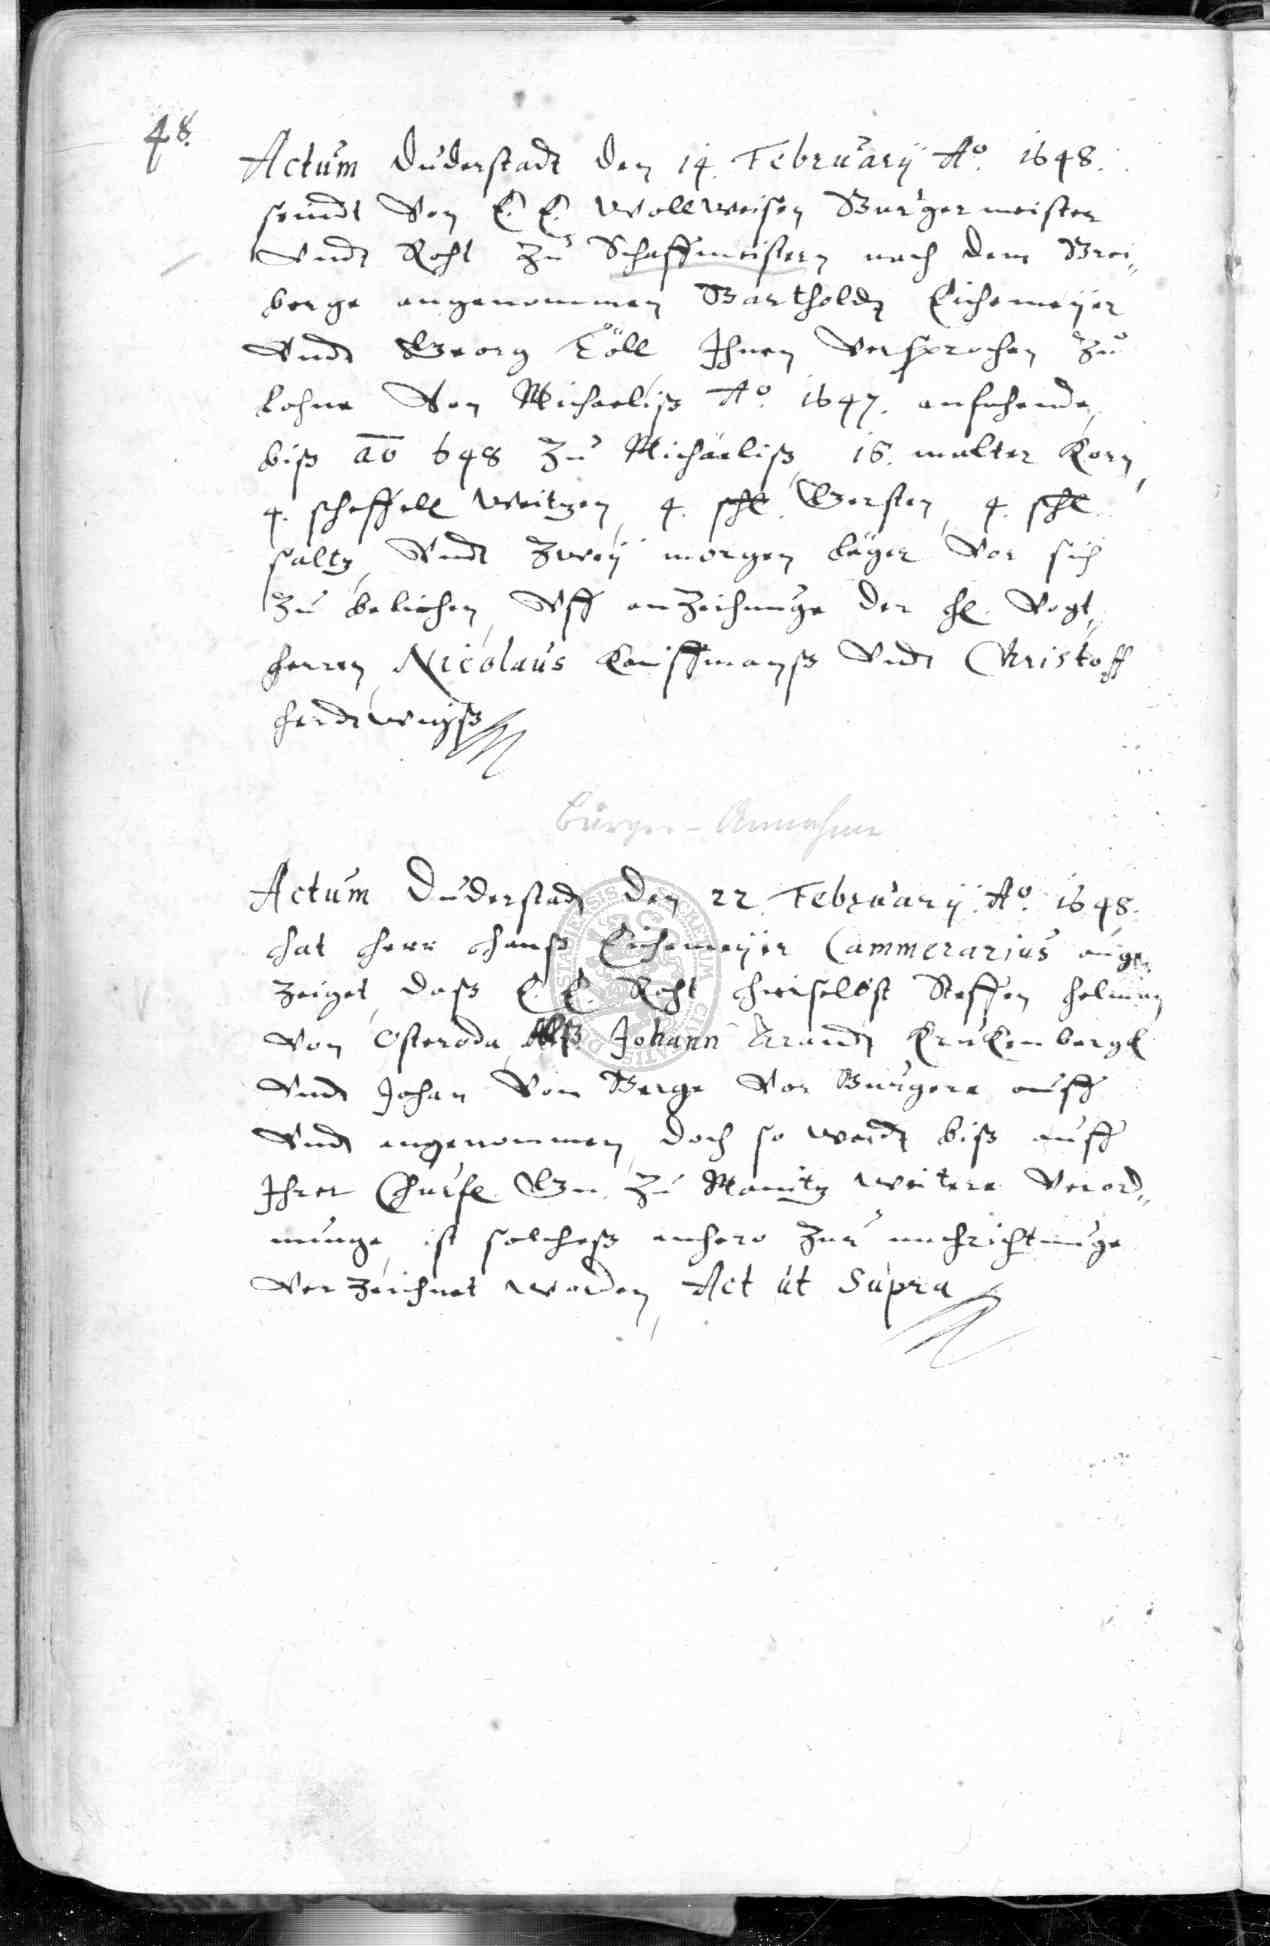 48.
Actum Duderstadt den 14. February Ao. 1648.
seindt von E. E. Wollweisen Burgermeister
vndt Raht zu Schaffmeistern nach dem Brei„
berge angenommen Barthold Eichemeyer
vndt Georg Töll Ihnen versprochen zu
Lohne von Michaeliß Ao. 1647. anfehende
biß ao 648 zu Michäeliß, 16. malter Korn,
4. scheffell Weitzen, 4. schl. Gersten, 4. schl
saltz, vndt zwey morgen läger vor sich
zu beliehen, vff anzeichnunge der hl. Vogt„
herren, Nicolaus Kauffmanß vndt Christoff
Herdtwigß
Bürger-Annahme
Actum Duderstadt den 22. February. Ao. 1648.
hat herr Hanß Eichemeyer Cammerarius ange„
zeiget, daß E. E. Raht hieselbst Steffen Helman
von Osteroda, Johann Arandt Krukenbergk
vndt Johan vom Berge vor Burgere auff
vndt angenommen, doch so weidt biß auff
Ihrer Churfl. Gn. zu Maintz weitere Verord„
nunge, ist solcheß anhero zur nachrichtunge
verzeichnet worden, Act ut Supra